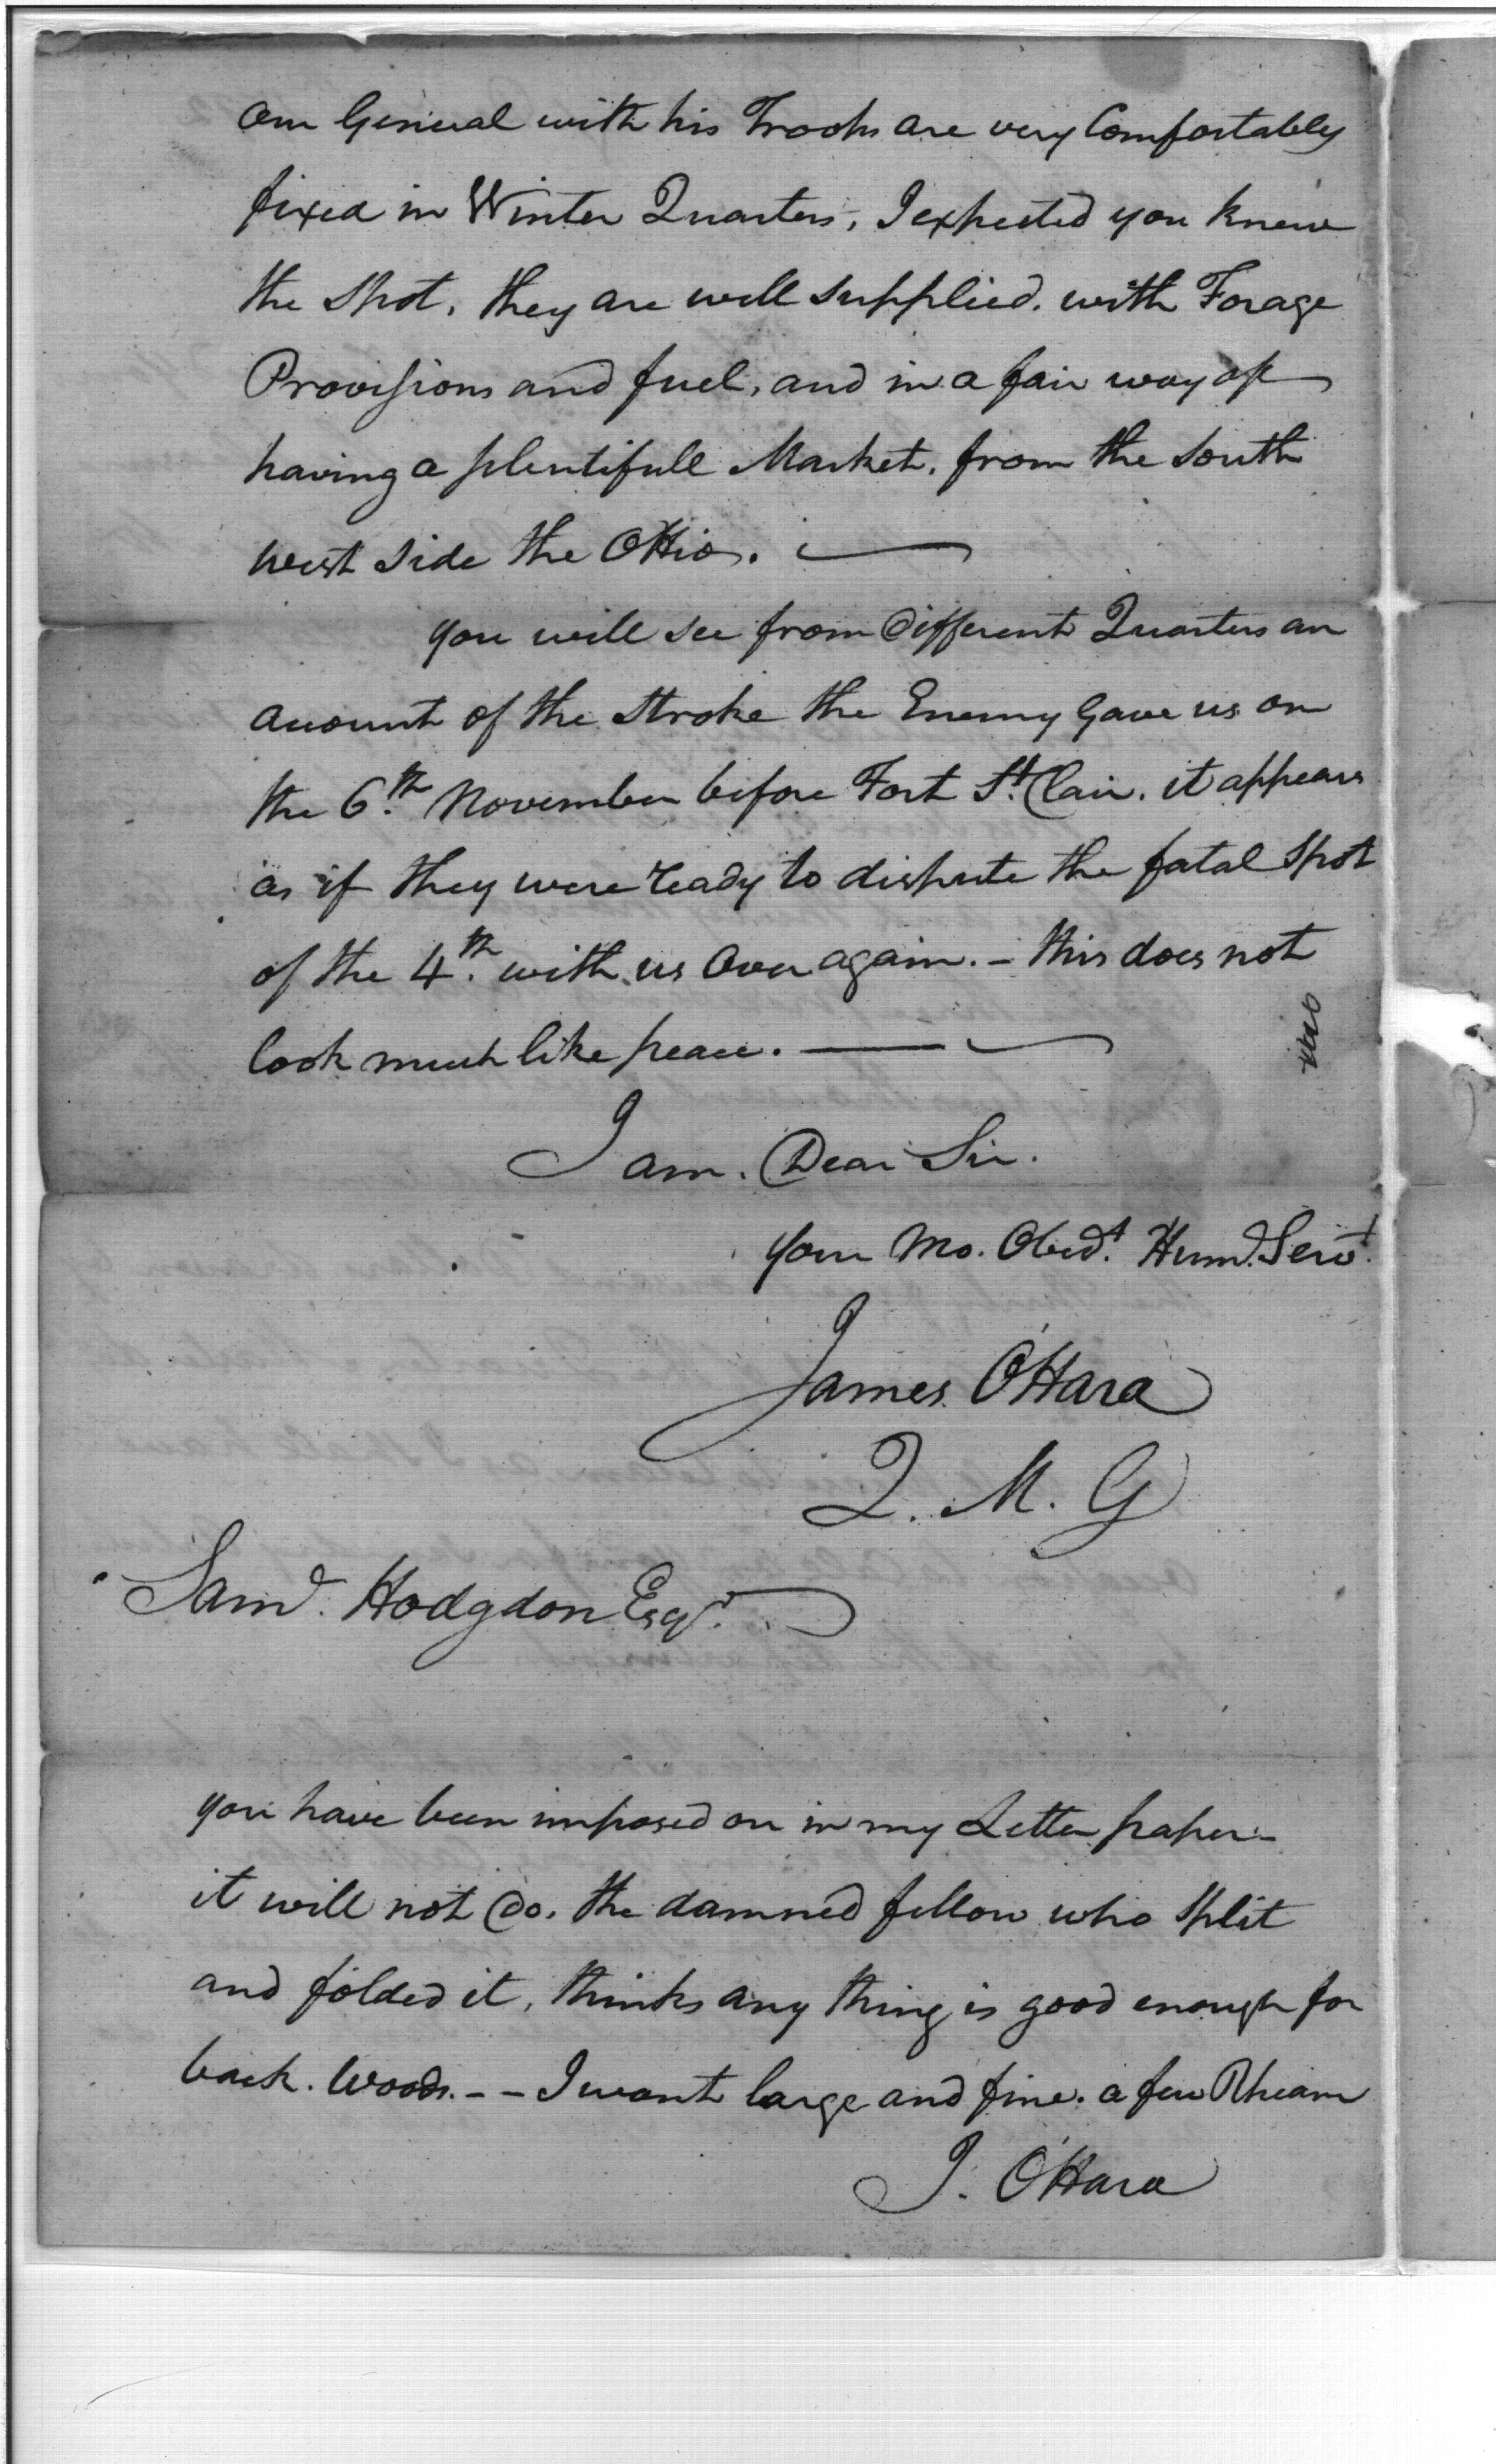 our General with his Troops are very Comfortably
fixed in Winter Quarters, I expected you knew
the Spot, they are well supplied. with Forage
Provisions and fuel, and in a fair way of
having a plentifull Market, from the South
west side the Ohio.
you will see from different Quarters an
account of the stroke the Enemy gave us on
the 6th. November before Fort St. Clair. it appears
as if they were ready to dispute the fatal Spot
of the 4th. with us Over again. - this does not
look much like peace.
I am. Dear Sir.
your Mo. Obedt. Humb. Servt.
James O'Hara
Q. M. G
Saml. Hodgdon Esqr.
you have been imposed on in my Letter paper -
it will not do. the damned fellow who split
and folded it, thinks any thing is good enough for
back. Woods. - - I want large and fine. a few Rheam
J. O'Hara